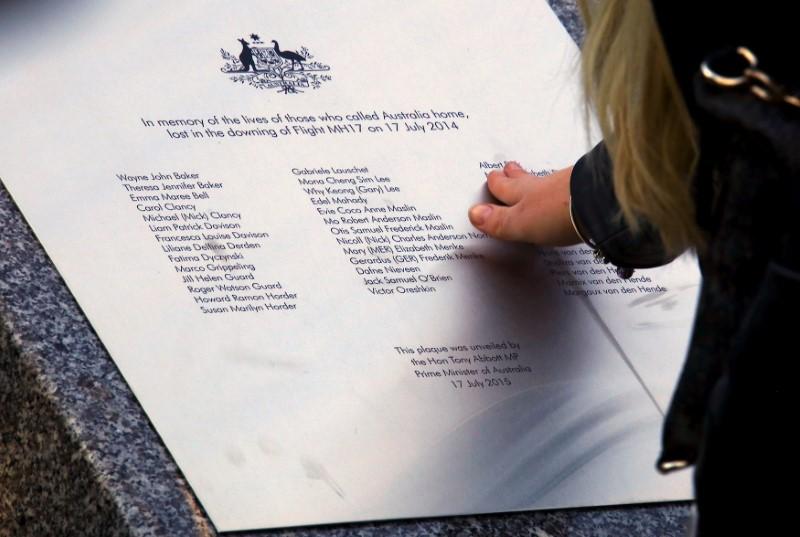 In memory of the lives of those who called Australia home,
lost in the downing of Flight MH17 on 17 July 2014
Wayne John Baker
Theresa Jennifer Baker
Emma Maree Bell
Carol Clancy
Michael (Mick) Clancy
Liam Patrick Davison
Francesca Louise Davison
Liliane Delfina Derden
Fatima Dyczynski
Marco Grippeling
Jill Helen Guard
Roger Watson Guard
Howard Ramon Horder
Susan Marilyn Horder
Gabriele Lauschet
Mona Cheng Sim Lee
Why Keong (Gary) Lee
Edel Mahady
Evie Coco Anne Maslin
Mo Robert Anderson Maslin
Otis Samuel Frederick Maslin
Nicoll (Nick) Charles Anderson Nor
Mary (MER) Elizabeth Menke
Gerardus (GER) Frederik Menke
Dafne Nieveen
Jack Samuel O'Brien
Victor Oreshkin
Albert
van de
van den H
van den Hende
Margaux van den Hende
This plaque was unveiled by
the Hon Tony Abbott MP
Prime Minister of Australia
17 July 2015